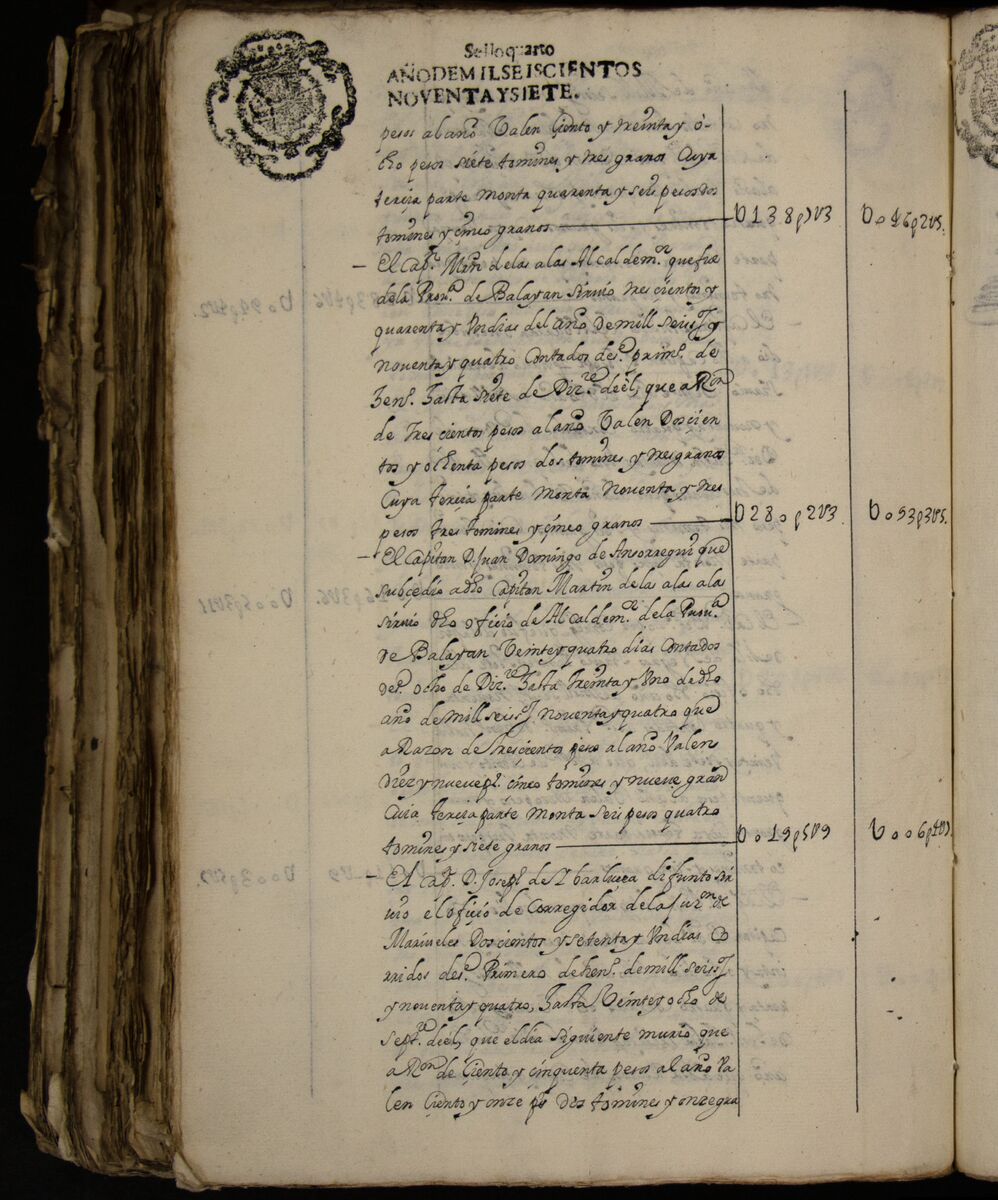 Sello quarto
AÑO DE MIL SEISCIENTOS
NOVENTA Y SIETE.
pesos al año Valen çiento y treinta y o-
cho pesos siete tomines y tres granos Cuya
terçia parte monta quarenta y seis pesos dos
tomines y çinco granos U138p7U3 Uo46p2U5.
— El capn. Mrn de las alas Alcalde mor. que fue
de la Prova. de Balayan siruio tres çientos y
quarenta y Vn dias del año de mill seiss y
noventa y quatro Contados dese. primo. de
Heno. hasta siete de Dizre. deel, que a Ron
de tres cientos pesos al año Valen Dosçien
tos y ochenta pesos dos tomines y tres granos
Cuya terçia parte monta Noventa y tres
pesos tres tomines y çinco granos U280p2U3 Uo93p3U5.
— El Capitan D. Juan Domingo de Ansorregui que
subçedio a dho Capitan Martin de las alas
siruio dho ofiçio de Alcalde mor. de la Prova.
de Balayan Veinte y quatro dias Contados
dese. ocho de Dizre. hasta treinta y Vno de dho
año de mill seiss Noventa y quatro que
a Razon de tresçientos pesos al año Valen
Diez y nueve ps. cinco tomines y nueve gran
Cuia terçia parte monta seis pesos quatro
tomines y siete granos Uo19p5U9 Uoo6p4U7
— El capn. D. Joseph de Ybarlucea difunto sir
uio el ofiçio de Corregidor de la Jurion. de
Mariueles Doscientos y setenta y Vn dias Co
rridos dese. Primero de heno. de mill seiss
y noventa y quatro, hasta Veinte y ocho de
Septre. deel, que el dia siguiente murio que
a Ron de Çiento y çinquenta pesos al año Va
len Çiento y onze ps Dos tomines y onze gra